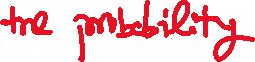 the probability